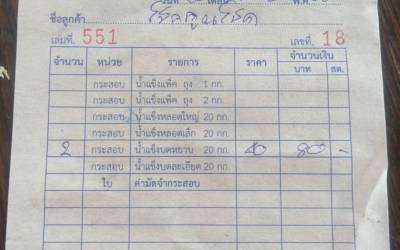 วันที่ เดือน พ.ศ.
ชื่อลูกค้า
เล่มที่ 551 เลขที่ 18
จำนวน หน่วย รายการ ราคา จำนวนเงิน
บาท สต.
กระสอบ น้ำแข็งแพ็ค ถุง 1 กก.
กระสอบ น้ำแข็งแพ็ค ถุง 2 กก.
กระสอบ น้ำแข็งหลอดใหญ่ 20 กก.
กระสอบ น้ำแข็งหลอดเล็ก 20 กก.
2 กระสอบ น้ำแข็งบดหยาบ 20 กก. 40 80 -
กระสอบ น้ำแข็งบดละเอียด 20 กก.
ใบ ค่ามัดจำกระสอบ